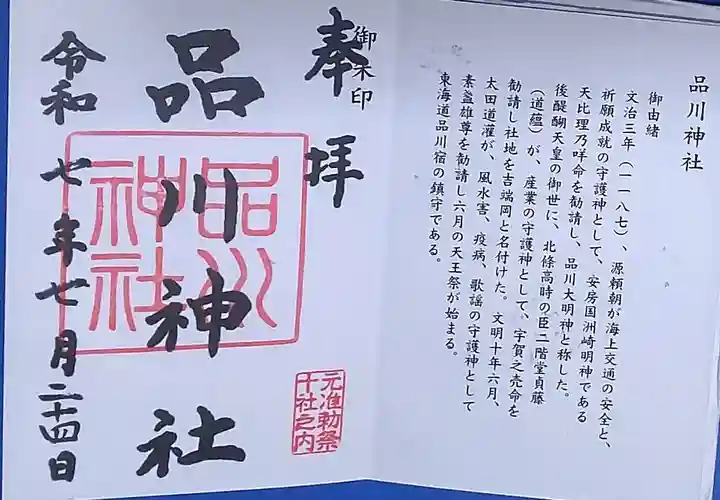 品川神社
御由緒
文治三年（一一八七）、源頼朝が海上交通の安全と、
祈願成就の守護神として、安房国洲崎明神である
天比理乃咩命を勧請し、品川大明神と称した。
後醍醐天皇の御世に、北條高時の臣二階堂貞藤
（道蘊）が、産業の守護神として、宇賀之売命を
勧請し社地を吉端岡と名付けた。文明十年六月、
太田道灌が、風水害、疫病、歌謡の守護神として
素盞雄尊を勧請し六月の天王祭が始まる。
東海道品川宿の鎮守である。
御朱印
奉拝
品川神社
品川
神社
元准勅祭
十社之内
令和七年七月二十四日